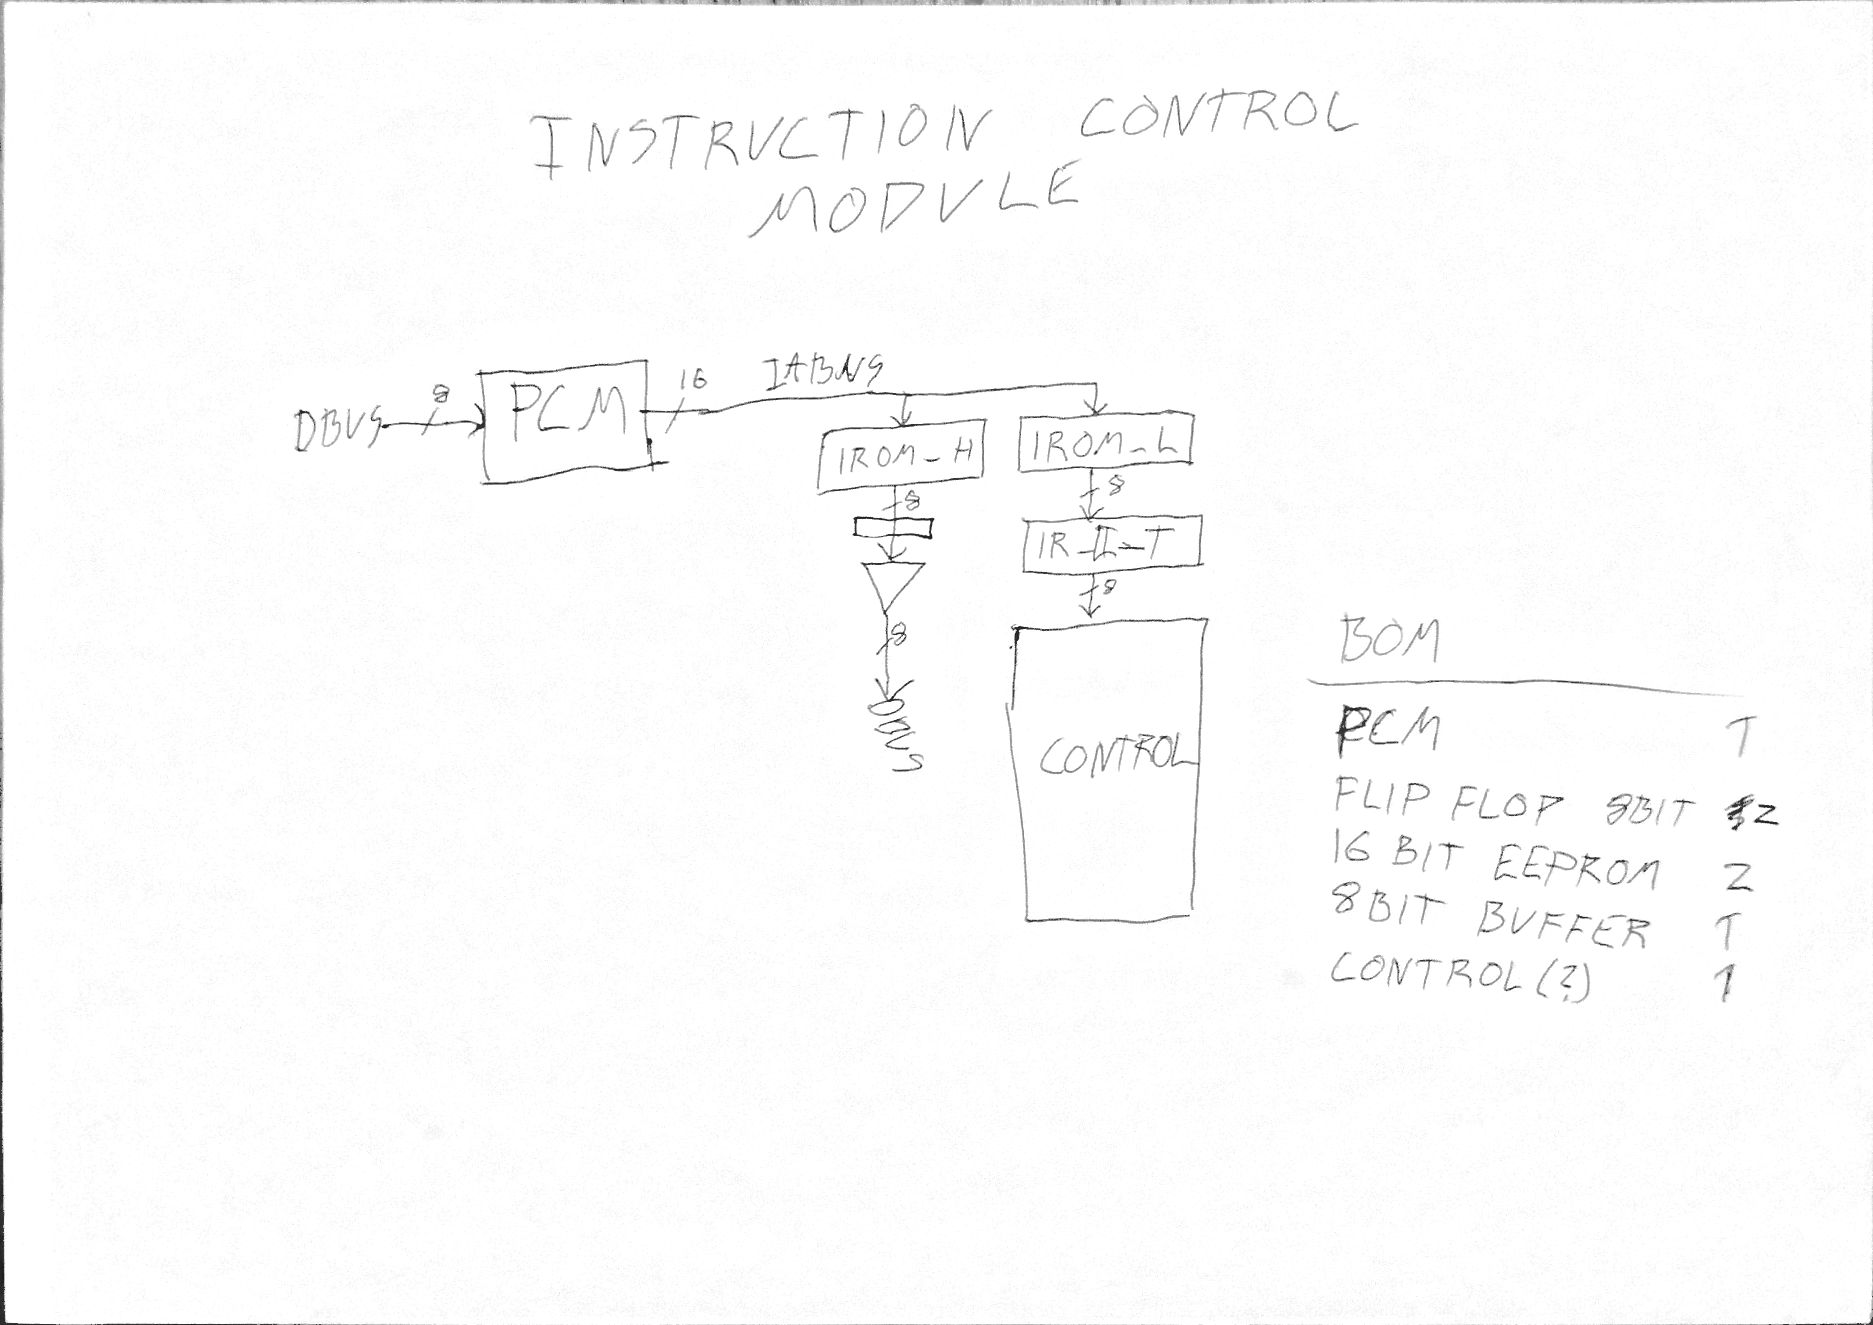 INSTRUCTION CONTROL
MODULE
8
16
IABUS
DBUS
PCM
IROM_H
IROM_L
8
8
IR_I_T
8
8
DBUS
CONTROL
BOM
PCM 1
FLIP FLOP 8BIT 2
16 BIT EEPROM 2
8BIT BUFFER 1
CONTROL (?) 1